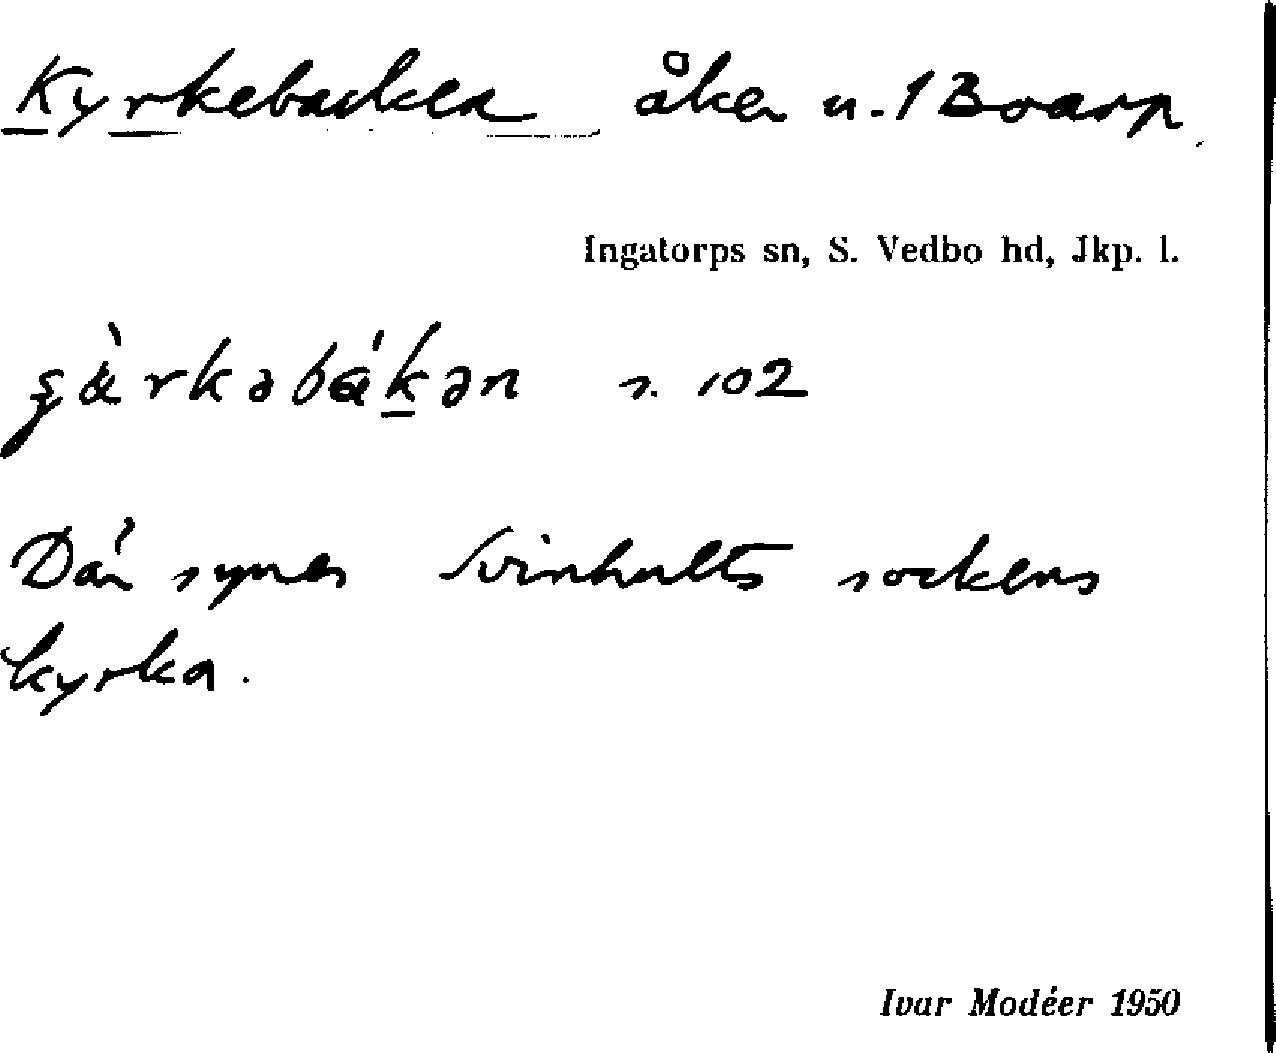 Kyrkebacken åker n. 1 Boarp
Ingatorps sn, S. Vedbo hd, Jkp. l.
s. 102
Där synes Svinhults sockens
kyrka.
Ivar Modéer 1950